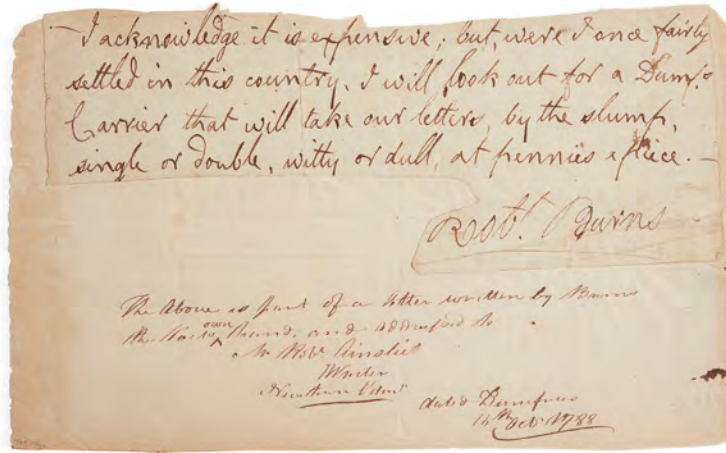 I acknowledge it is expensive; but, were I once fairly
settled in this country, I will look out for a Dumf.s
Carrier that will take our letters, by the slump,
single or double, witty or dull, at pennies a piece. —
Robt. Burns
The Above is part of a letter written by Burns
the Poets own hand, and addressed to
Mr Robt Ainslie
Writer
Edinr
dated Dumfries
16th Octr 1788